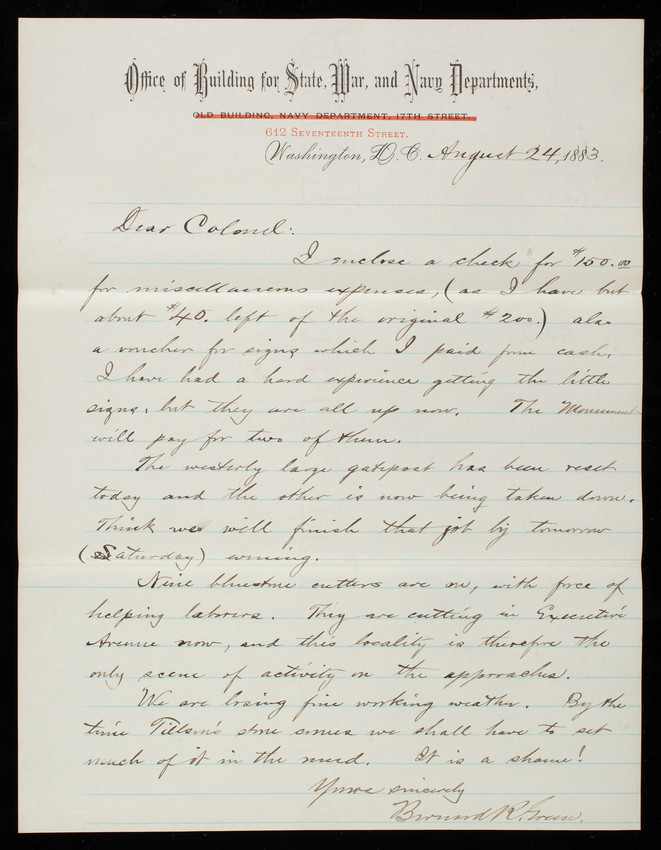 Office of Building for State, War, and Navy Departments,
OLD BUILDING, NAVY DEPARTMENT, 17TH STREET.
612 SEVENTEENTH STREET.
Washington, D. C. August 24, 1883.
Dear Colonel:
I enclose a check for $150.00
for miscellaneous expenses, (as I have but
about $40. left of the original $200.) also
a voucher for signs which I paid from cash.
I have had a hard experience getting the little
signs, but they are all up now. The Monument
will pay for two of them.
The westerly large gatepost has been reset
today and the other is now being taken down.
Think we will finish that job by tomorrow
(Saturday) evening.
Nine bluestone cutters are on, with force of
helping laborers. They are cutting in Executive
Avenue now, and this locality is therefore the
only scene of activity on the approaches.
We are losing fine working weather. By the
time Tillson's stone comes we shall have to set
much of it in the mud. It is a shame!
Yours sincerely
Bernard R. Green.